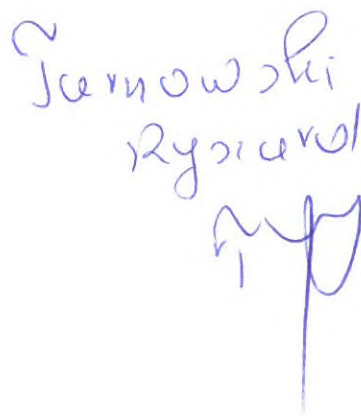 Tarnowski
Ryszard